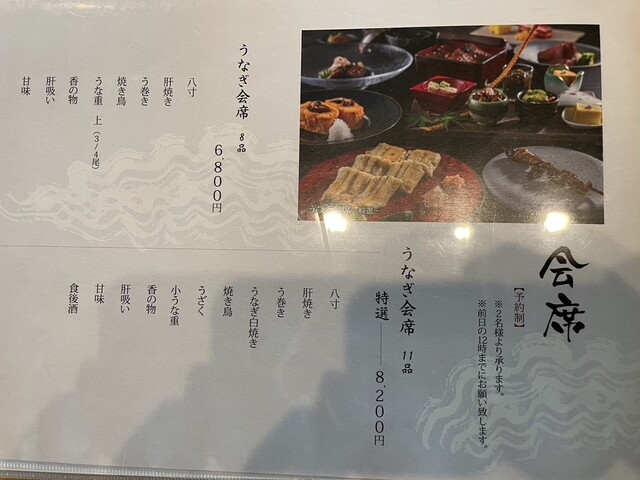 会席
【予約制】
※2名様より承ります。
※前日の12時までにお願い致します。
うなぎ会席 8品
6,800円
八寸
肝焼き
う巻き
焼き鳥
うな重 上（3/4尾）
香の物
肝吸い
甘味
うなぎ会席 11品
特選 8,200円
八寸
肝焼き
う巻き
うなぎ白焼き
焼き鳥
うざく
小うな重
香の物
肝吸い
甘味
食後酒